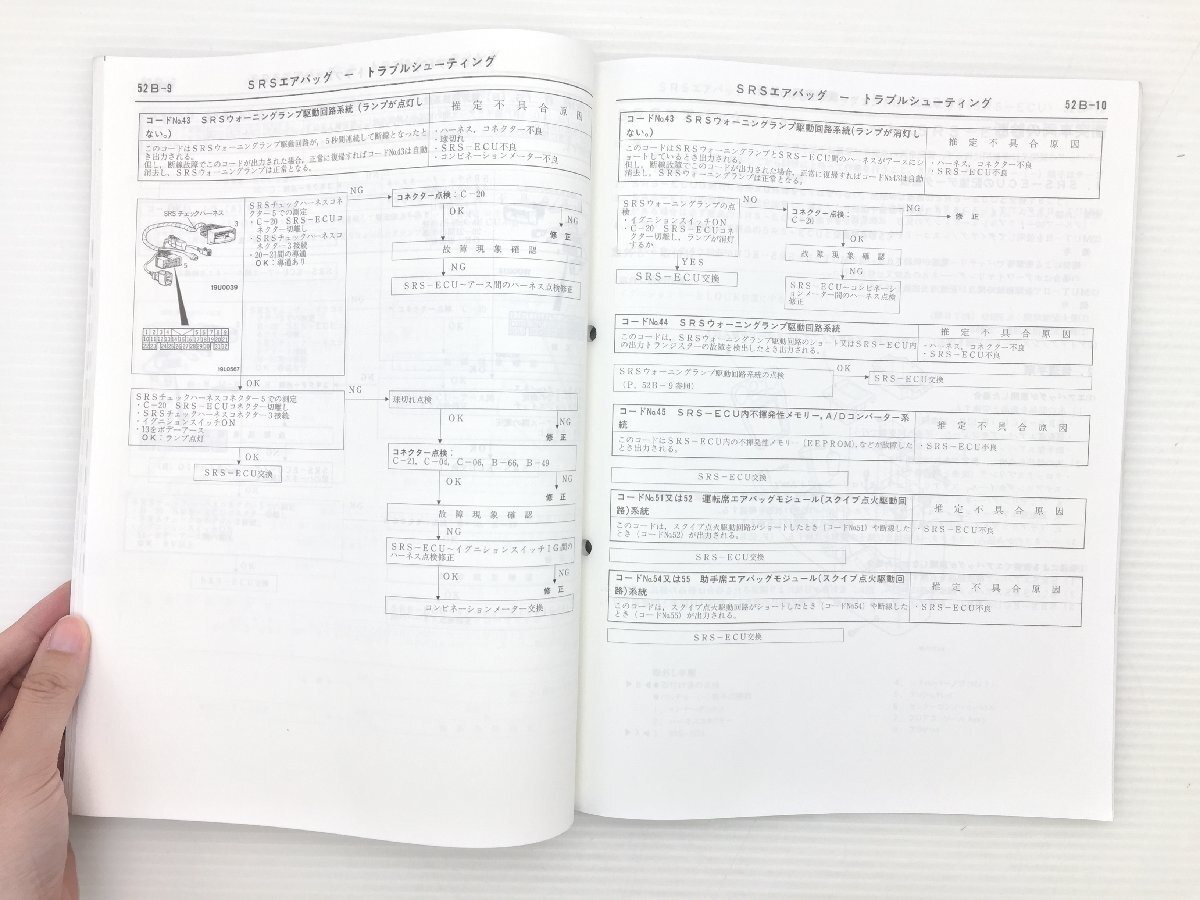 52B-9
SRSエアバッグ － トラブルシューティング
コードNo.43 SRSウォーニングランプ駆動回路系統(ランプが点灯し
ない。)
推定不具合原因
このコードはSRSウォーニングランプ駆動回路が，5秒間連続して断線となったと
き出力される。
但し，断線故障でこのコードが出力された場合，正常に復帰すればコードNo.43は自動
消去し，SRSウォーニングランプは正常となる。
・ハーネス，コネクター不良
・球切れ
・SRS-ECU不良
・コンビネーションメーター不良
SRSチェックハーネス
3
5
19U0039
1 2 3 4 5 6 7 8 9
19L0567
SRSチェックハーネスコネ
クター5での測定
・C-20 SRS-ECUコ
ネクター切離し
・SRSチェックハーネスコ
ネクター3接続
・20-21間の導通
OK：導通あり
NG
コネクター点検：C-20
OK
NG
修正
故障現象確認
NG
SRS-ECU～アース間のハーネス点検修正
OK
SRSチェックハーネスコネクター5での測定
・C-20 SRS-ECUコネクター切離し
・SRSチェックハーネスコネクター3接続
・イグニションスイッチON
・13をボデーアース
OK：ランプ点灯
NG
球切れ点検
OK
NG
修正
OK
SRS-ECU交換
コネクター点検：
C-21，C-04，C-06，B-66，B-49
OK
NG
修正
故障現象確認
NG
SRS-ECU～イグニションスイッチIG間の
ハーネス点検修正
OK
NG
修正
コンビネーションメーター交換
SRSエアバッグ － トラブルシューティング
52B-10
コードNo.43 SRSウォーニングランプ駆動回路系統(ランプが消灯し
ない。)
推定不具合原因
このコードはSRSウォーニングランプとSRS-ECU間のハーネスがアースにシ
ョートしているとき出力される。
但し，断線故障でこのコードが出力された場合，正常に復帰すればコードNo.43は自動
消去し，SRSウォーニングランプは正常となる。
・ハーネス，コネクター不良
・SRS-ECU不良
SRSウォーニングランプの点
検
・イグニションスイッチON
・C-20 SRS-ECUコネ
クター切離し，ランプが消灯
するか
NO
コネクター点検：
C-20
NG
修正
OK
故障現象確認
NG
SRS-ECU～コンビネーシ
ョンメーター間のハーネス点検
修正
YES
SRS-ECU交換
コードNo.44 SRSウォーニングランプ駆動回路系統
推定不具合原因
このコードは，SRSウォーニングランプ駆動回路のショート又はSRS-ECU内
の出力トランジスターの故障を検出したとき出力される。
・ハーネス，コネクター不良
・SRS-ECU不良
SRSウォーニングランプ駆動回路系統の点検
(P．52B-9参照)
OK
SRS-ECU交換
コードNo.45 SRS-ECU内不揮発性メモリー，A/Dコンバーター系
統
推定不具合原因
このコードはSRS-ECU内の不揮発性メモリー(EEPROM)，などが故障した
とき出力される。
・SRS-ECU不良
SRS-ECU交換
コードNo.51又は52 運転席エアバッグモジュール(スクイブ点火駆動回
路)系統
推定不具合原因
このコードは，スクイブ点火駆動回路がショートしたとき(コードNo.51)や断線した
とき(コードNo.52)が出力される。
・SRS-ECU不良
SRS-ECU交換
コードNo.54又は55 助手席エアバッグモジュール(スクイブ点火駆動回
路)系統
推定不具合原因
このコードは，スクイブ点火駆動回路がショートしたとき(コードNo.54)や断線した
とき(コードNo.55)が出力される。
・SRS-ECU不良
SRS-ECU交換